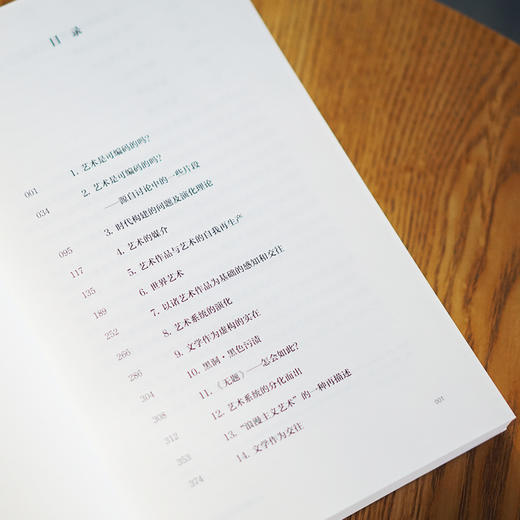 目 录
001 1. 艺术是可编码的吗?
034 2. 艺术是可编码的吗?
——源自讨论中的一些片段
095 3. 时代构建的问题及演化理论
117 4. 艺术的媒介
135 5. 艺术作品与艺术的自我再生产
189 6. 世界艺术
252 7. 以诸艺术作品为基础的感知和交往
266 8. 艺术系统的演化
286 9. 文学作为虚构的实在
304 10. 黑洞·黑色污渍
308 11.《无题》——怎会如此?
312 12. 艺术系统的分化而出
353 13. “浪漫主义艺术”的一种再描述
374 14. 文学作为交往
001